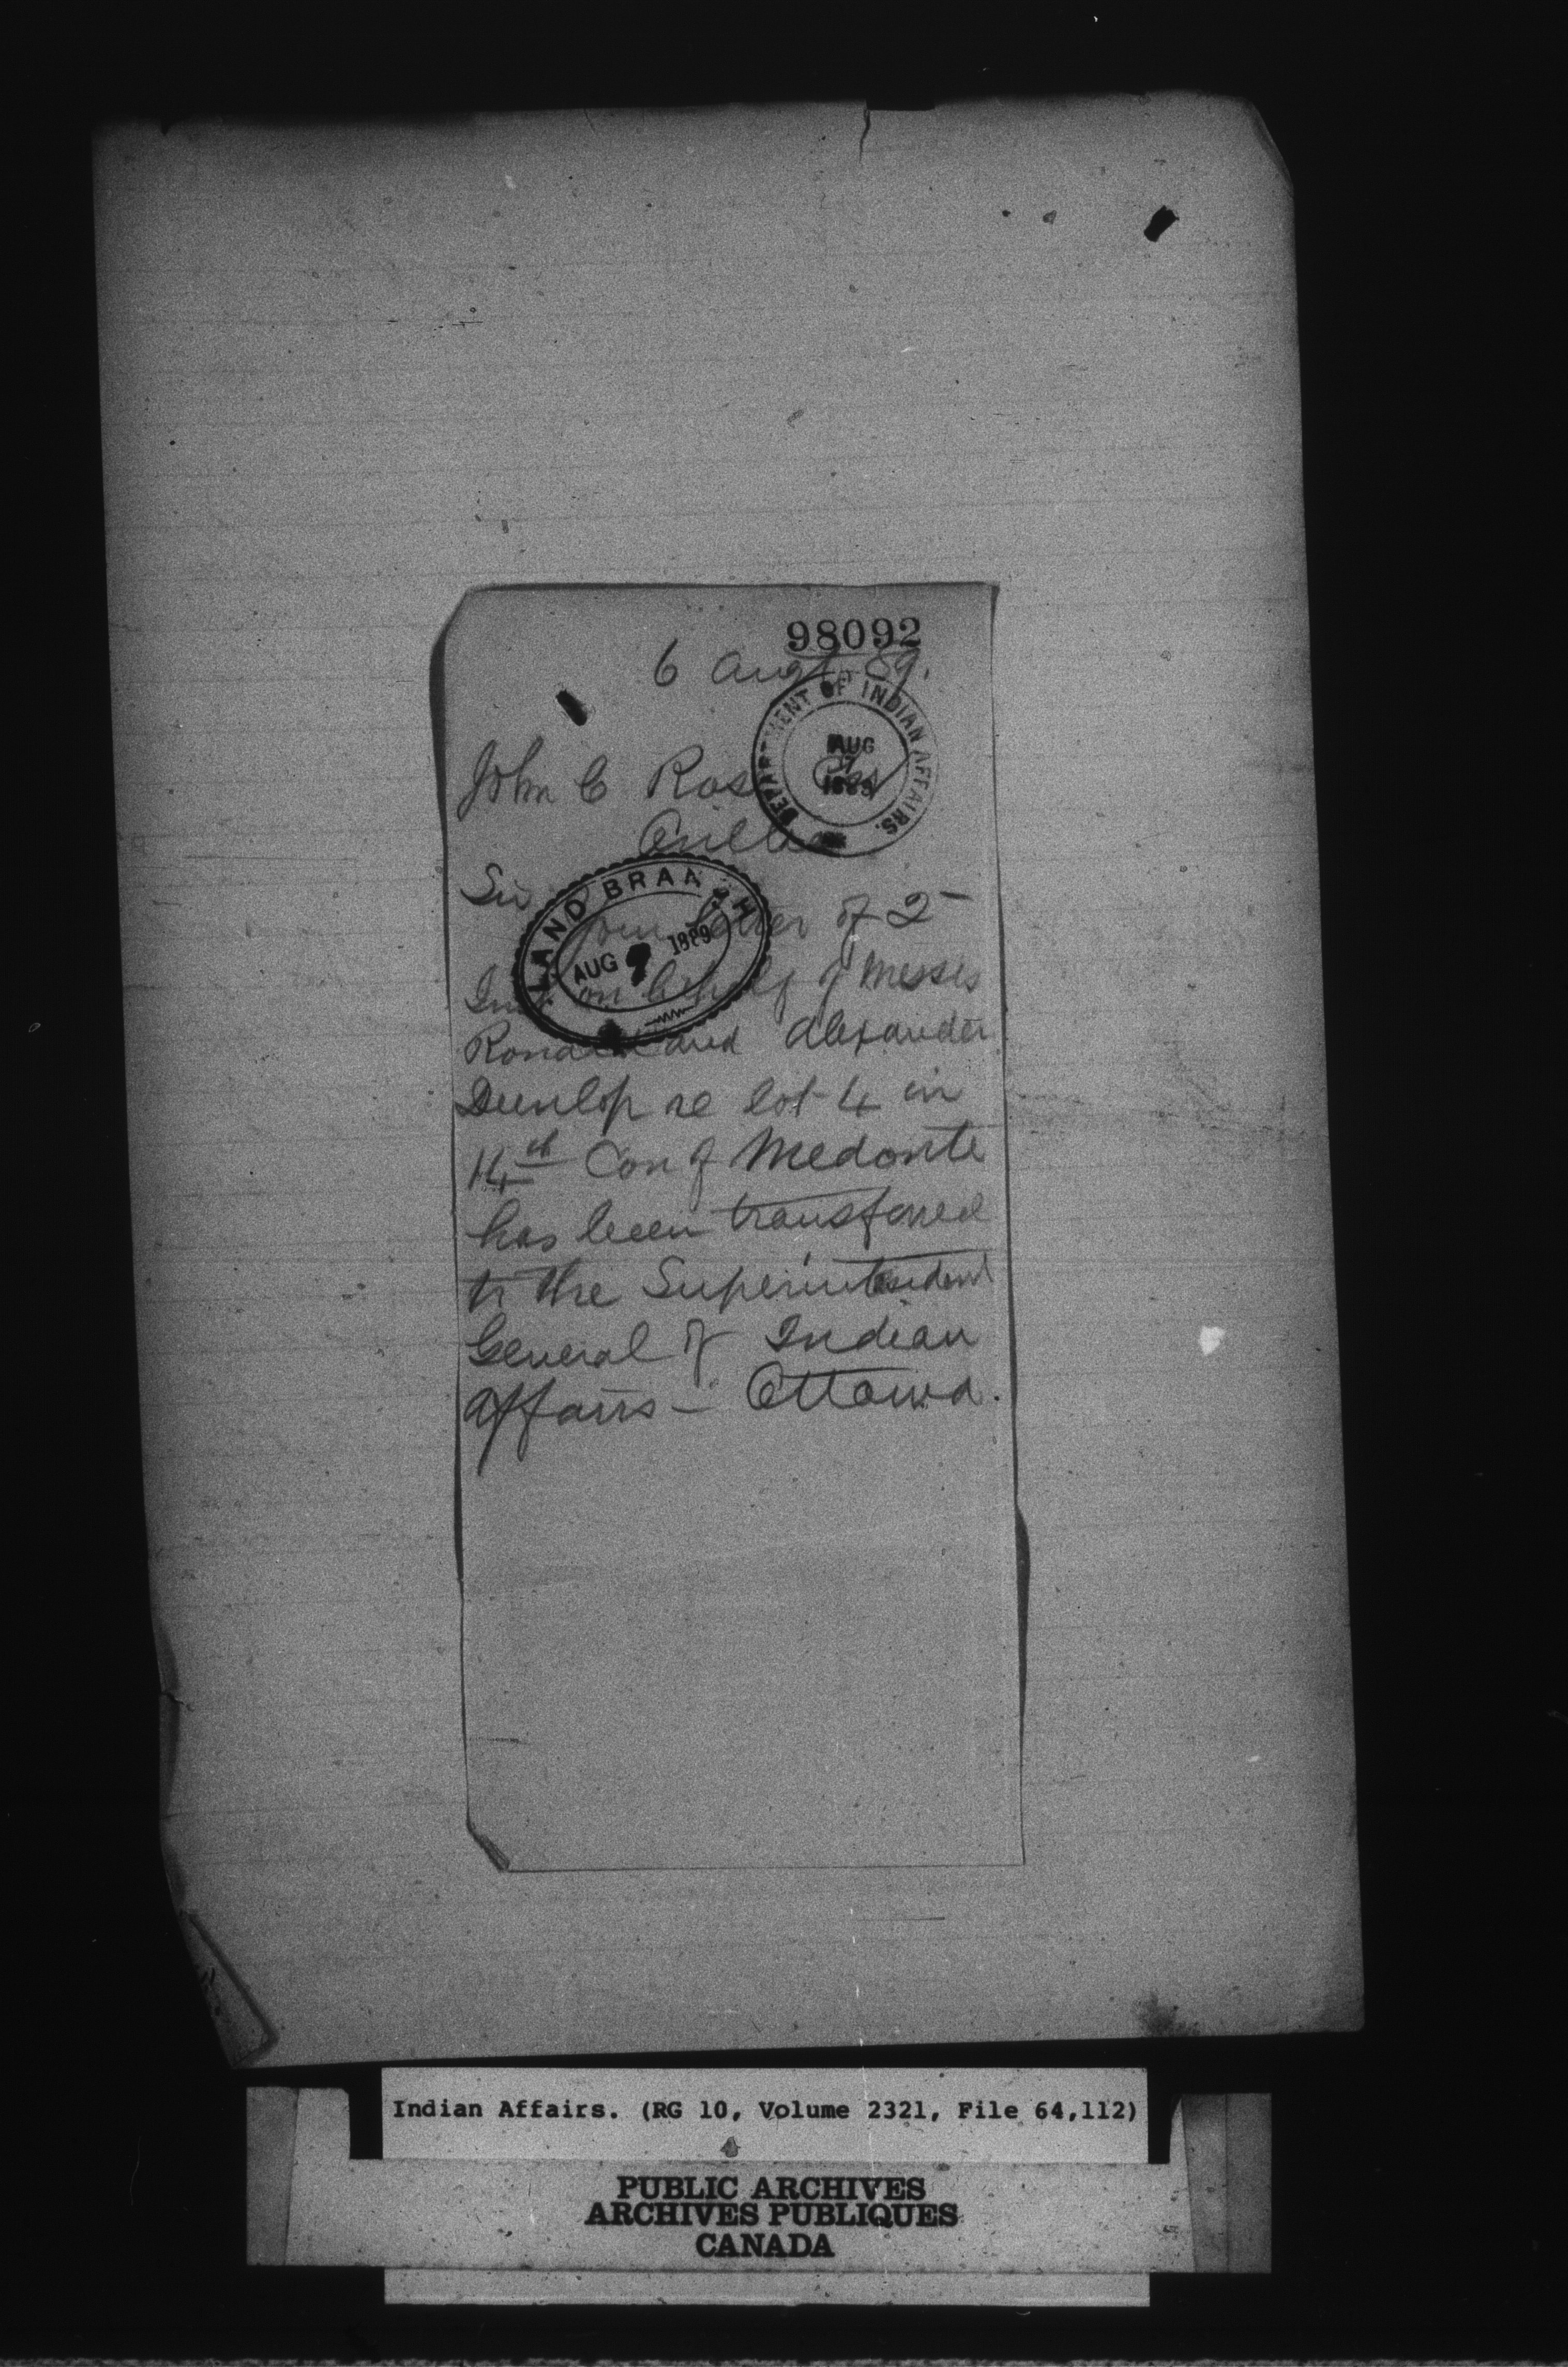 98092
6 Augt. 89.
DEPARTMENT OF INDIAN AFFAIRS.
AUG
7
1889
John C Ross
Orillia
Sir
LAND BRANCH
AUG 9 1889
Your letter of 2
Inst on behalf of Messrs
Ronald and Alexander
Dunlop re lot 4 in
14th Con of Medonte
has been transferred
to the Superintendent
General of Indian
Affairs - Ottawa.
Indian Affairs. (RG 10, Volume 2321, File 64,112)
PUBLIC ARCHIVES
ARCHIVES PUBLIQUES
CANADA